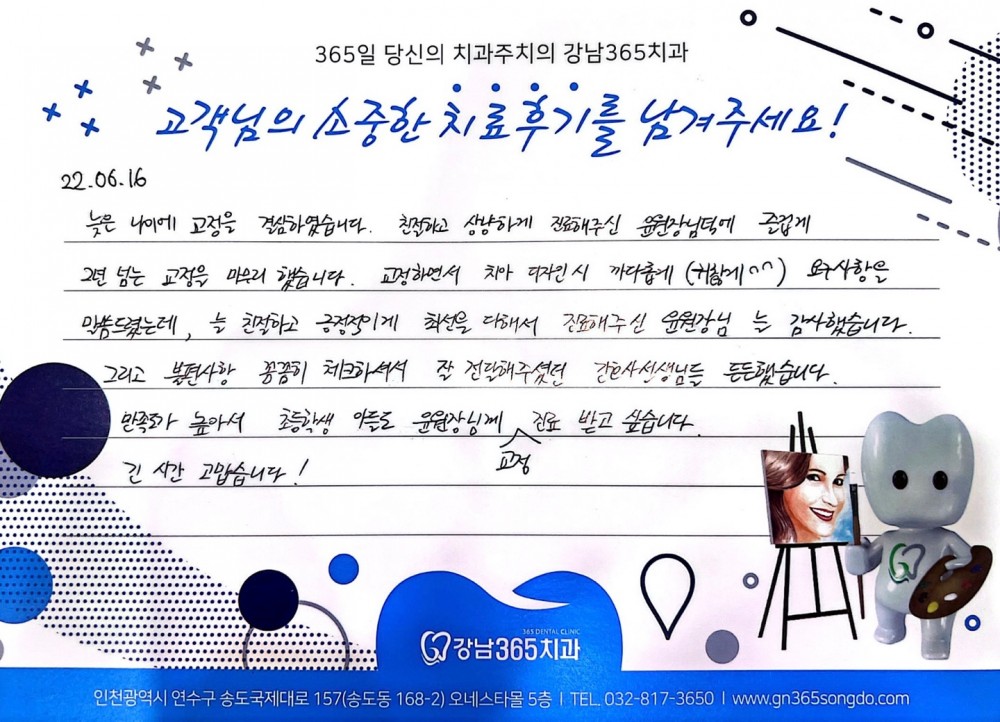 365일 당신의 치과주치의 강남365치과
고객님의 소중한 치료후기를 남겨주세요!
22.06.16
늦은 나이에 교정을 결심하였습니다. 친절하고 상냥하게 진료해주신 윤원장님덕에 즐겁게
2년 넘는 교정을 마무리 했습니다. 교정하면서 치아 디자인시 까다롭게 (귀찮게^^) 요구사항을
말씀드렸는데, 늘 친절하고 긍정적이게 최선을 다해서 진료해주신 윤원장님 늘 감사했습니다.
그리고 불편사항 꼼꼼히 체크하셔서 잘 전달해주셨던 간호사선생님들 든든했습니다.
만족도가 높아서 초등학생 아들도 윤원장님께 교정 진료 받고 싶습니다.
긴 시간 고맙습니다!
365 DENTAL CLINIC
강남365치과
인천광역시 연수구 송도국제대로 157(송도동 168-2) 오네스타몰 5층 | TEL. 032-817-3650 | www.gn365songdo.com